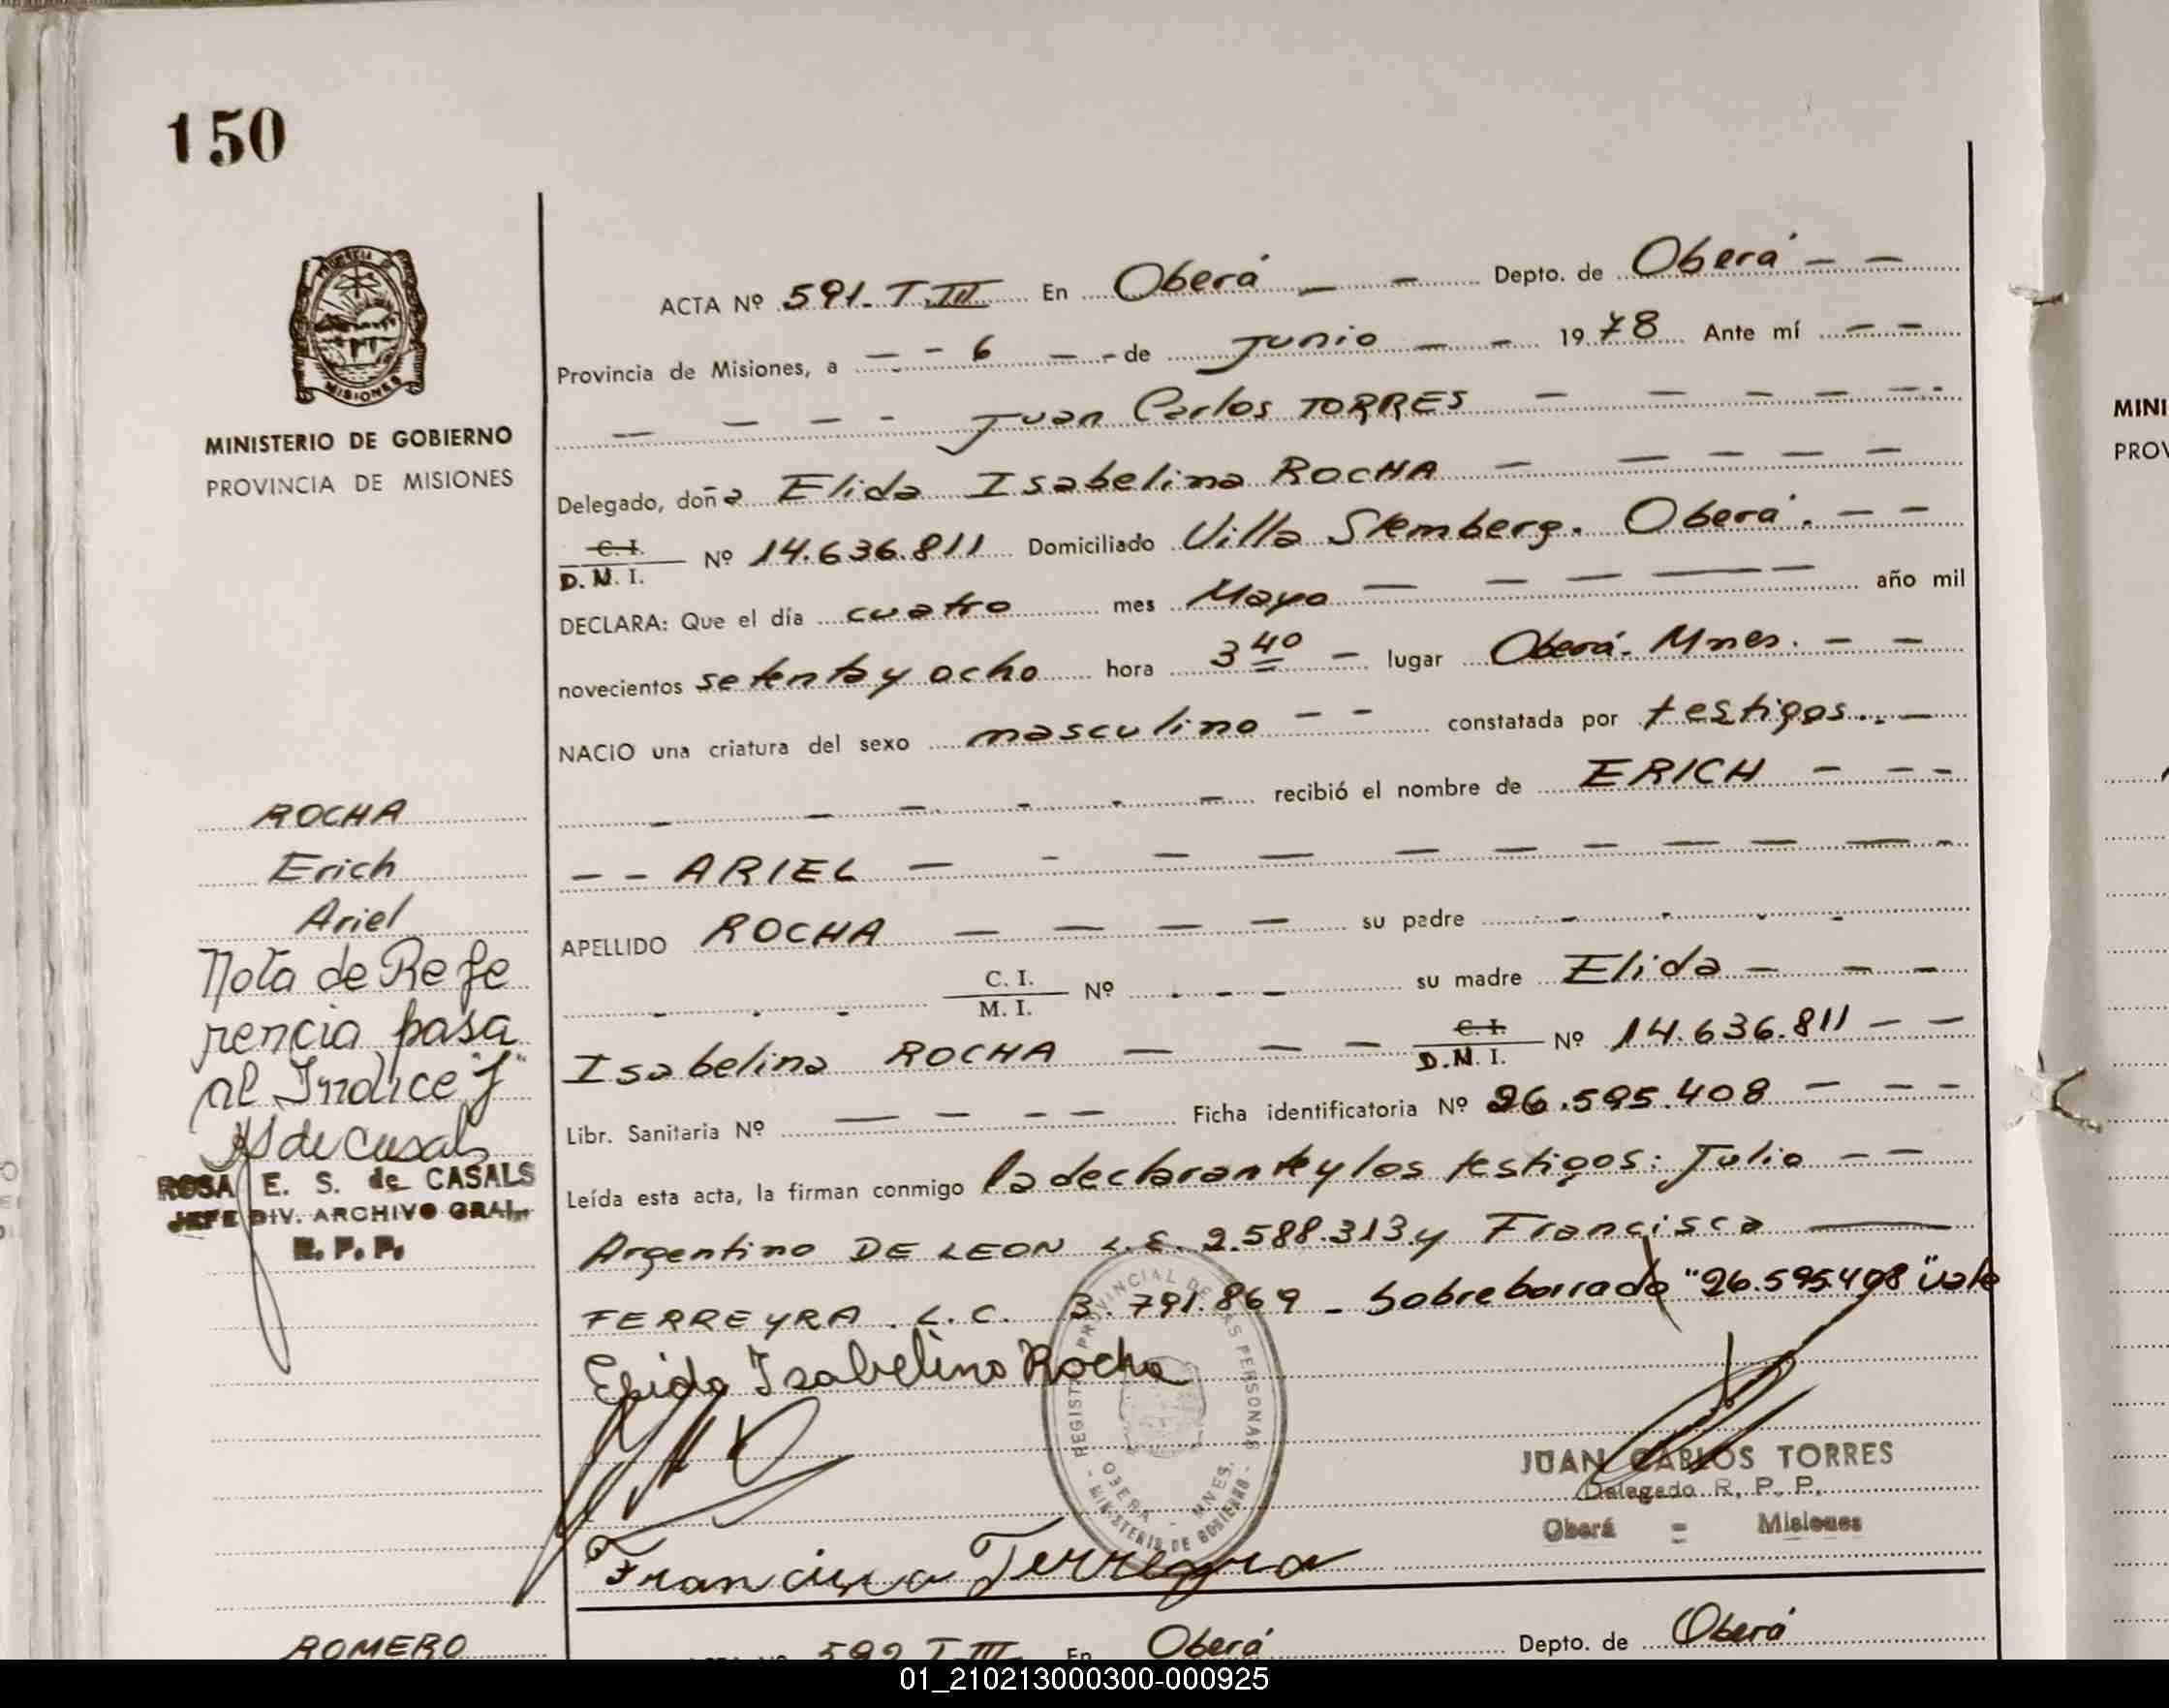 150
MINISTERIO DE GOBIERNO
PROVINCIA DE MISIONES
ACTA Nº 591. T. III En Oberá Depto. de Oberá
Provincia de Misiones, a 6 de Junio 1978 Ante mí
Juan Carlos TORRES
Delegado, doña Elida Isabelina ROCHA
C. I.
D. N. I. Nº 14.636.811 Domiciliado Villa Stemberg. Oberá.
DECLARA: Que el día cuatro mes Mayo año mil
novecientos setenta y ocho hora 3 40 lugar Oberá. Mnes.
NACIO una criatura del sexo masculino constatada por testigos.
recibió el nombre de ERICH
ARIEL
APELLIDO ROCHA su padre
C. I.
M. I. Nº su madre Elida
Isabelina ROCHA C. I.
D. N. I. Nº 14.636.811
Libr. Sanitaria Nº Ficha identificatoria Nº 26.595.408
Leída esta acta, la firman conmigo la declarante y los testigos: Julio
Argentino DE LEON L.E. 2.588.313 y Francisca
FERREYRA. L.C. 3.791.869 - Sobreborrado "26.595.408" vale
Elida Isabelina Rocha
Francisca Ferreyra
REGISTRO PROVINCIAL DE LAS PERSONAS
OBERA - MNES.
- MINISTERIO DE GOBIERNO -
JUAN CARLOS TORRES
Delegado R. P. P.
Oberá = Misiones
ROCHA
Erich
Ariel
Nota de Refe
rencia pasa
al Indice "J"
RS de Casals
ROSA E. S. de CASALS
JEFE DIV. ARCHIVO GRAL.
R. P. P.
ROMERO
592 T III En Oberá Depto. de Oberá
MINI
PROV
01_210213000300-000925